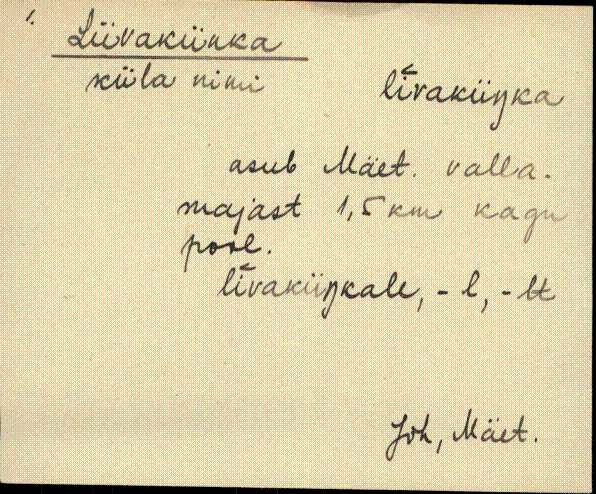 1.
Liivakünka
küla nimi
lī̆vaküŋka
asub Mäet. valla-
majast 1,5 km kagu
pool.
lī̆vaküŋkale, -l, -lt
Jõh, Mäet.